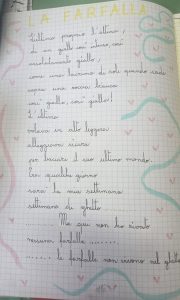 LA FARFALLA
L'ultima proprio l'ultima,
di un giallo così intenso, così
assolutamente giallo,
come una lacrima di sole quando cade
sopra una roccia bianca
così gialla, così gialla!
L'ultima
volava in alto leggera
aleggiava sicura
per baciare il suo ultimo mondo.
Tra qualche giorno
sarà la mia settimana
settimana di ghetto.
Ma qui non ho rivisto
nessuna farfalla
le farfalle non vivono nel ghetto